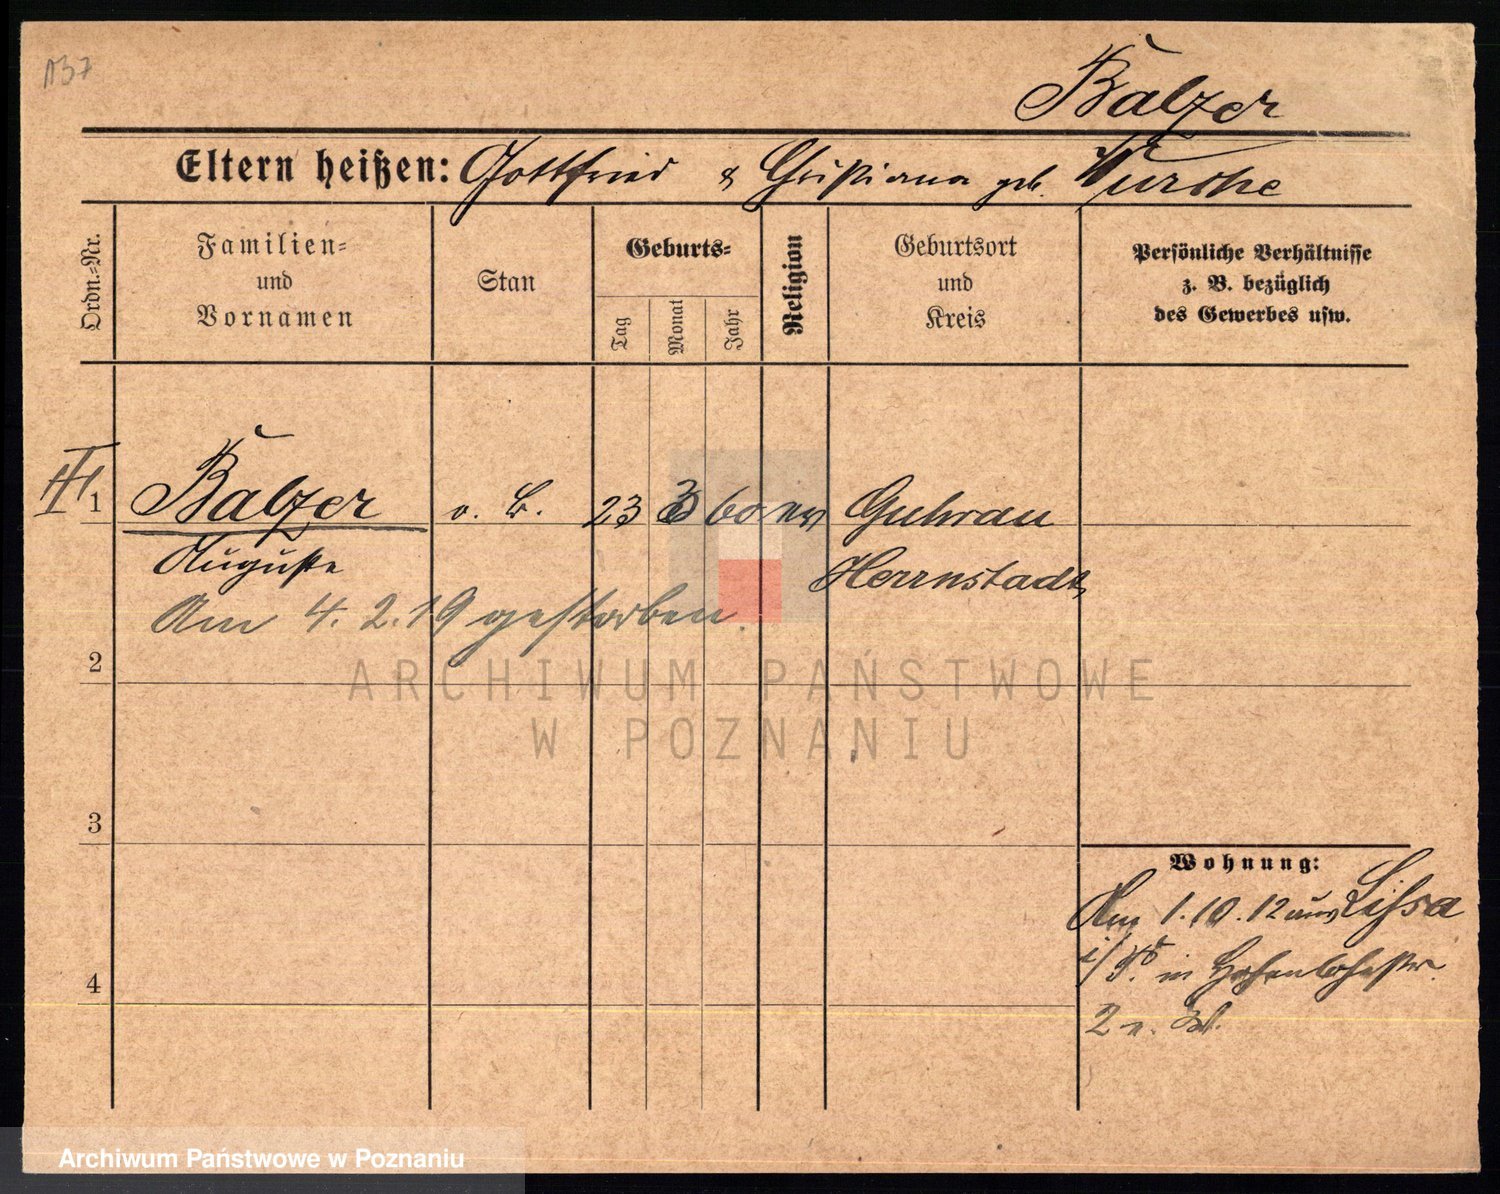 137
Balzer
Eltern heißen: Gottfried & Christiana geb. Wursche
Ordn.=Nr.
Familien=
und
Vornamen
Stan
Geburts=
Tag
Monat
Jahr
Religion
Geburtsort
und
Kreis
Persönliche Verhältnisse
z. B. bezüglich
des Gewerbes usw.
III
1 Balzer o. B. 23 3 60 ev Guhrau
Auguste Herrnstadt
Am 4. 2. 19 gestorben.
2
3
4
Wohnung:
Am 1. 10. 12 aus Lissa
i/P. in Hohenlohestr.
2 n.
ARCHIWUM PAŃSTWOWE
W POZNANIU
Archiwum Państwowe w Poznaniu